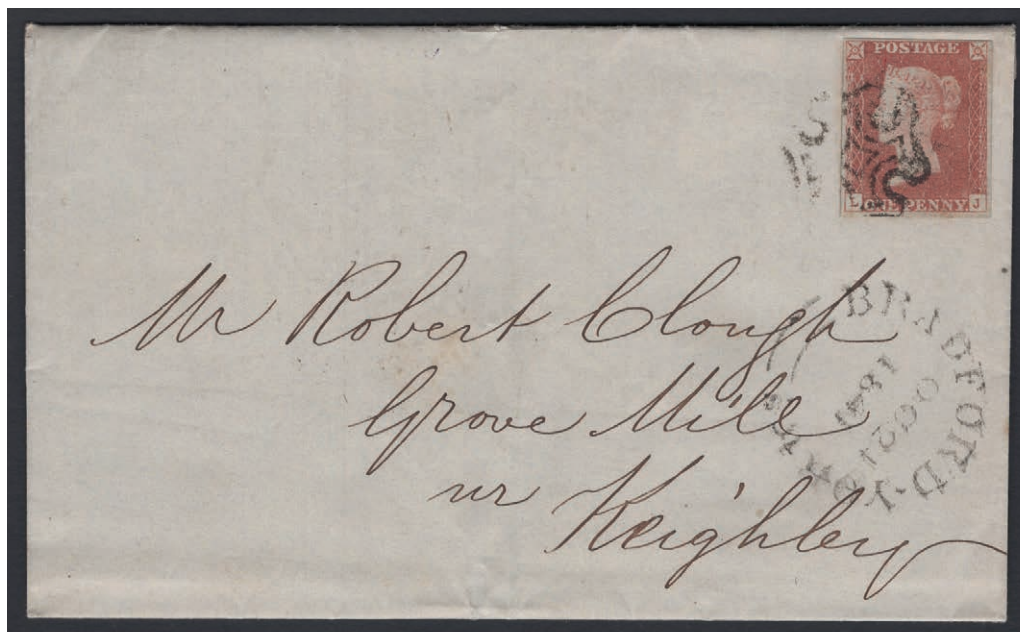 POSTAGE
L ONE PENNY J
Mr Robert Clough
Grove Mill
nr Keighley
BRADFORD-Y
1841